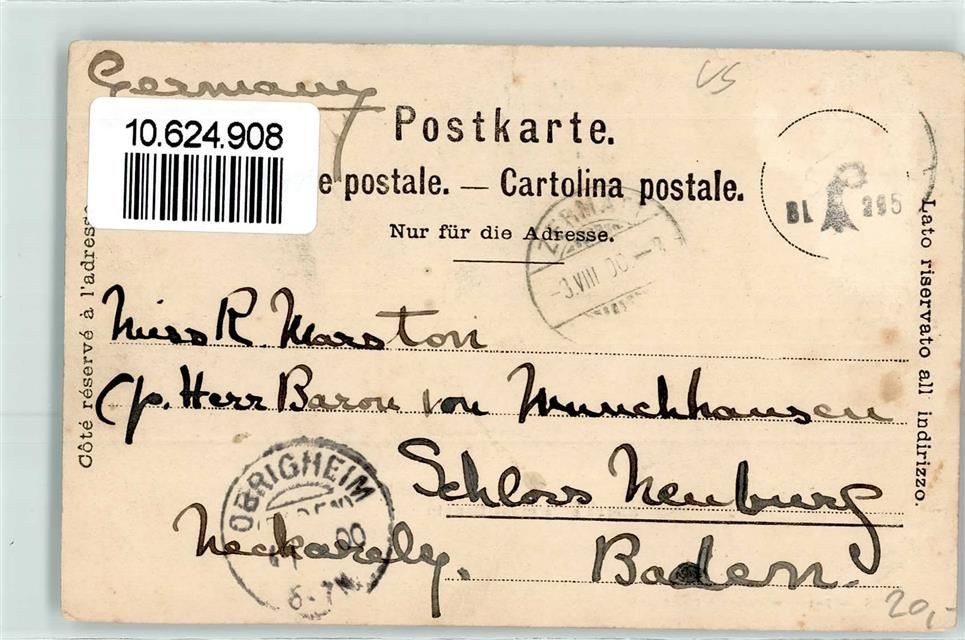 Germany
VS
10.624.908
Postkarte.
e postale. — Cartolina postale.
Nur für die Adresse.
BL 295
Côté réservé à l'adresse
Lato riservato all indirizzo.
ZERMATT
-3.VIII 00.-8
Miss R. Marston
c/o. Herr Baron von Munchhausen
Schloss Neuburg
OBRIGHEIM
00
6-7N.
Neckarelz. Baden.
20,-